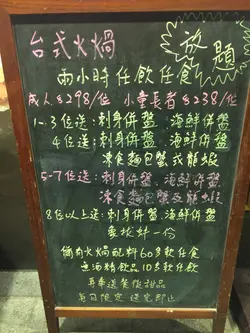 台式火鍋
放題
兩小時任飲任食
成人$298/位 小童長者$238/位
1-3位送:刺身併盤.海鮮併盤
4位送:刺身併盤.海鮮併盤
凍食麵包蟹或龍蝦
5-7位送:刺身併盤.海鮮併盤.
凍食麵包蟹及龍蝦
8位以上送:刺身併盤.海鮮併盤
火鍋配料60多款任食
無酒精飲品10多款任飲
送餐後甜品
每日限定 送完即止